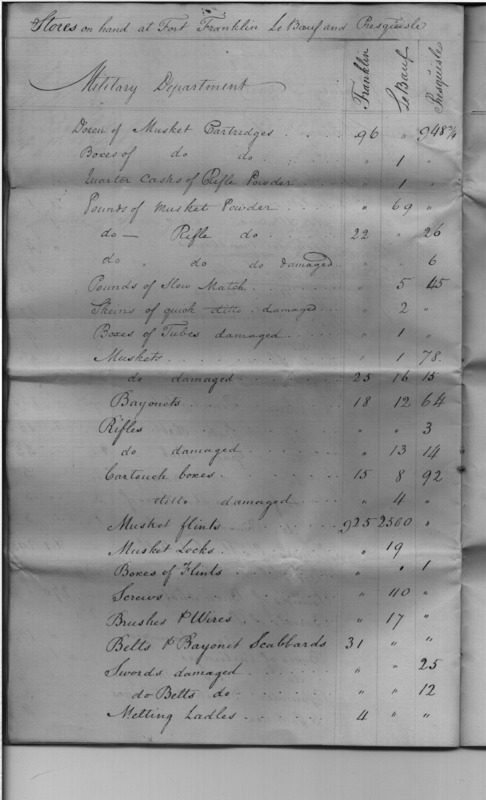 Stores on hand at Fort Franklin Le Bœuf and Presquisle
Military Department Franklin Le Bœuf Presquisle
Dozen of Musket Cartridges . . . . 96 " 948 3/4
Boxes of do do . . . . " 1 "
Quarter Casks of Rifle Powder . . . . " 1 "
Pounds of Musket Powder . . . . " 69 "
do — Rifle do . . . . 22 " 26
do " do do damaged " " 6
Pounds of Slow Match . . . . " 5 45
Skeins of quick ditto . damaged . . . . " 2 "
Boxes of Tubes damaged . . . . " 1 "
Muskets . . . . " 1 78
do damaged . . . . 25 16 15
Bayonets . . . . 18 12 64
Rifles . . . . " " 3
do damaged . . . . " 13 14
Cartouch boxes . . . . 15 8 92
ditto damaged . . . . " 4 "
Musket flints . . . . 925 2500 "
Musket Locks . . . . " 19 "
Boxes of Flints . . . . " " 1
Screws . . . . " 110 "
Brushes & Wires . . . . " 17 "
Belts & Bayonet Scabbards 31 " "
Swords damaged . . . . " " 25
do Belts do . . . . " " 12
Melting Ladles . . . . 4 " "